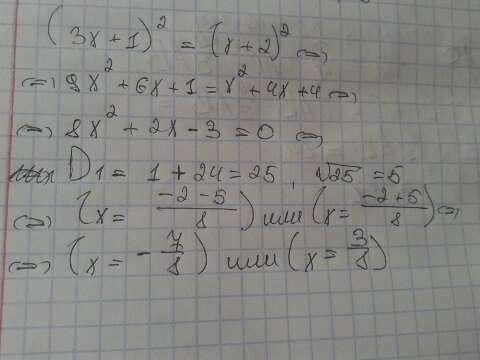 (3x+1)² = (x+2)² ⇔
⇔ 9x² + 6x + 1 = x² + 4x + 4 ⇔
⇔ 8x² + 2x - 3 = 0 ⇔
D₁ = 1 + 24 = 25, √25 = 5
⇔ (x = (-2-5)/8) или (x = (-2+5)/8) ⇔
⇔ (x = -7/8) или (x = 3/8)